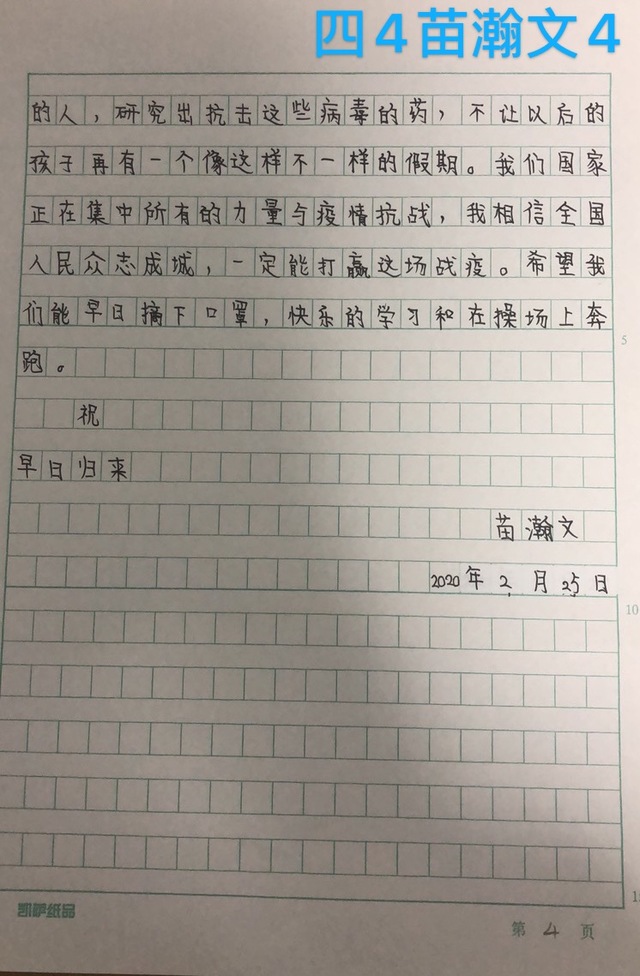 四4苗瀚文4
的人，研究出抗击这些病毒的药，不让以后的
孩子再有一个像这样不一样的假期。我们国家
正在集中所有的力量与疫情抗战，我相信全国
人民众志成城，一定能打赢这场战疫。希望我
们能早日摘下口罩，快乐的学习和在操场上奔
跑。
5
祝
早日归来
苗瀚文
2020年2月25日
10
15
凯萨纸品
第4页